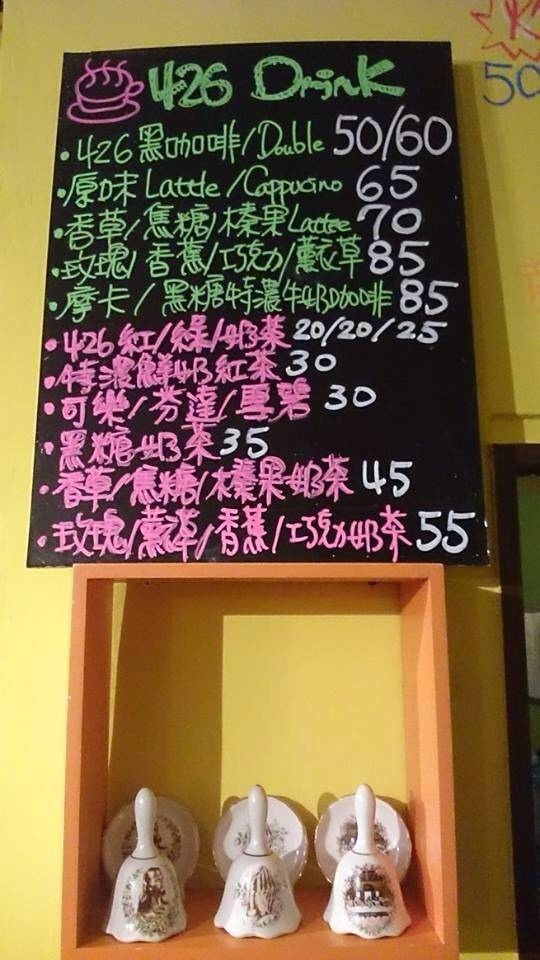 426 Drink
·426黑咖啡/Double 50/60
·原味Lattle/Cappucino 65
·香草/焦糖/榛果Lattee 70
·玫瑰/香蕉/巧克力/薰草 85
·摩卡/黑糖特濃牛奶咖啡 85
·426紅/綠/奶茶 20/20/25
·特濃鮮奶紅茶 30
·可樂/芬達/雪碧 30
·黑糖奶茶 35
·香草/焦糖/榛果奶茶 45
·玫瑰/薰草/香蕉/巧克力奶茶 55
50